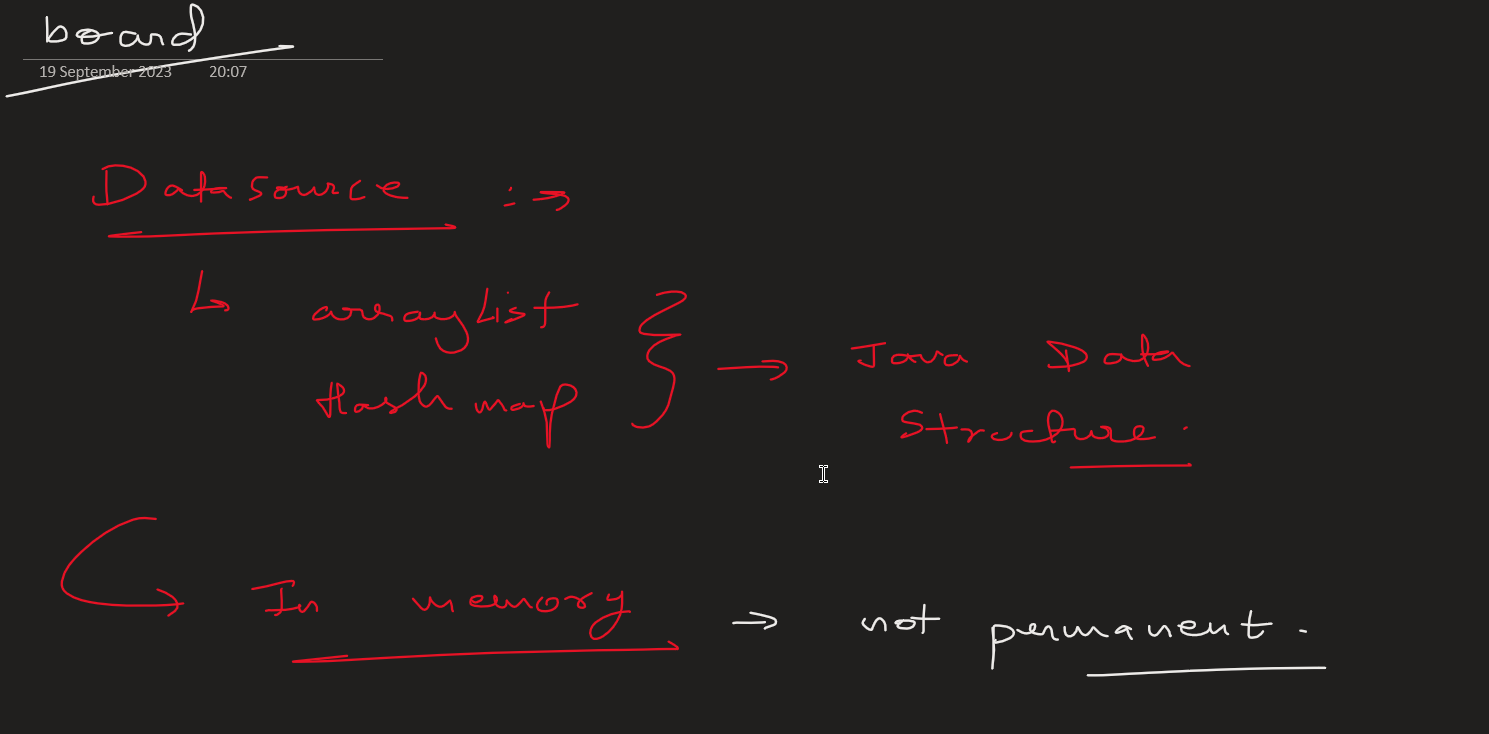 board
19 September 2023 20:07
Datasource :→
↳ arrayList
Hashmap } → Java Data
Structure.
In memory → not permanent.